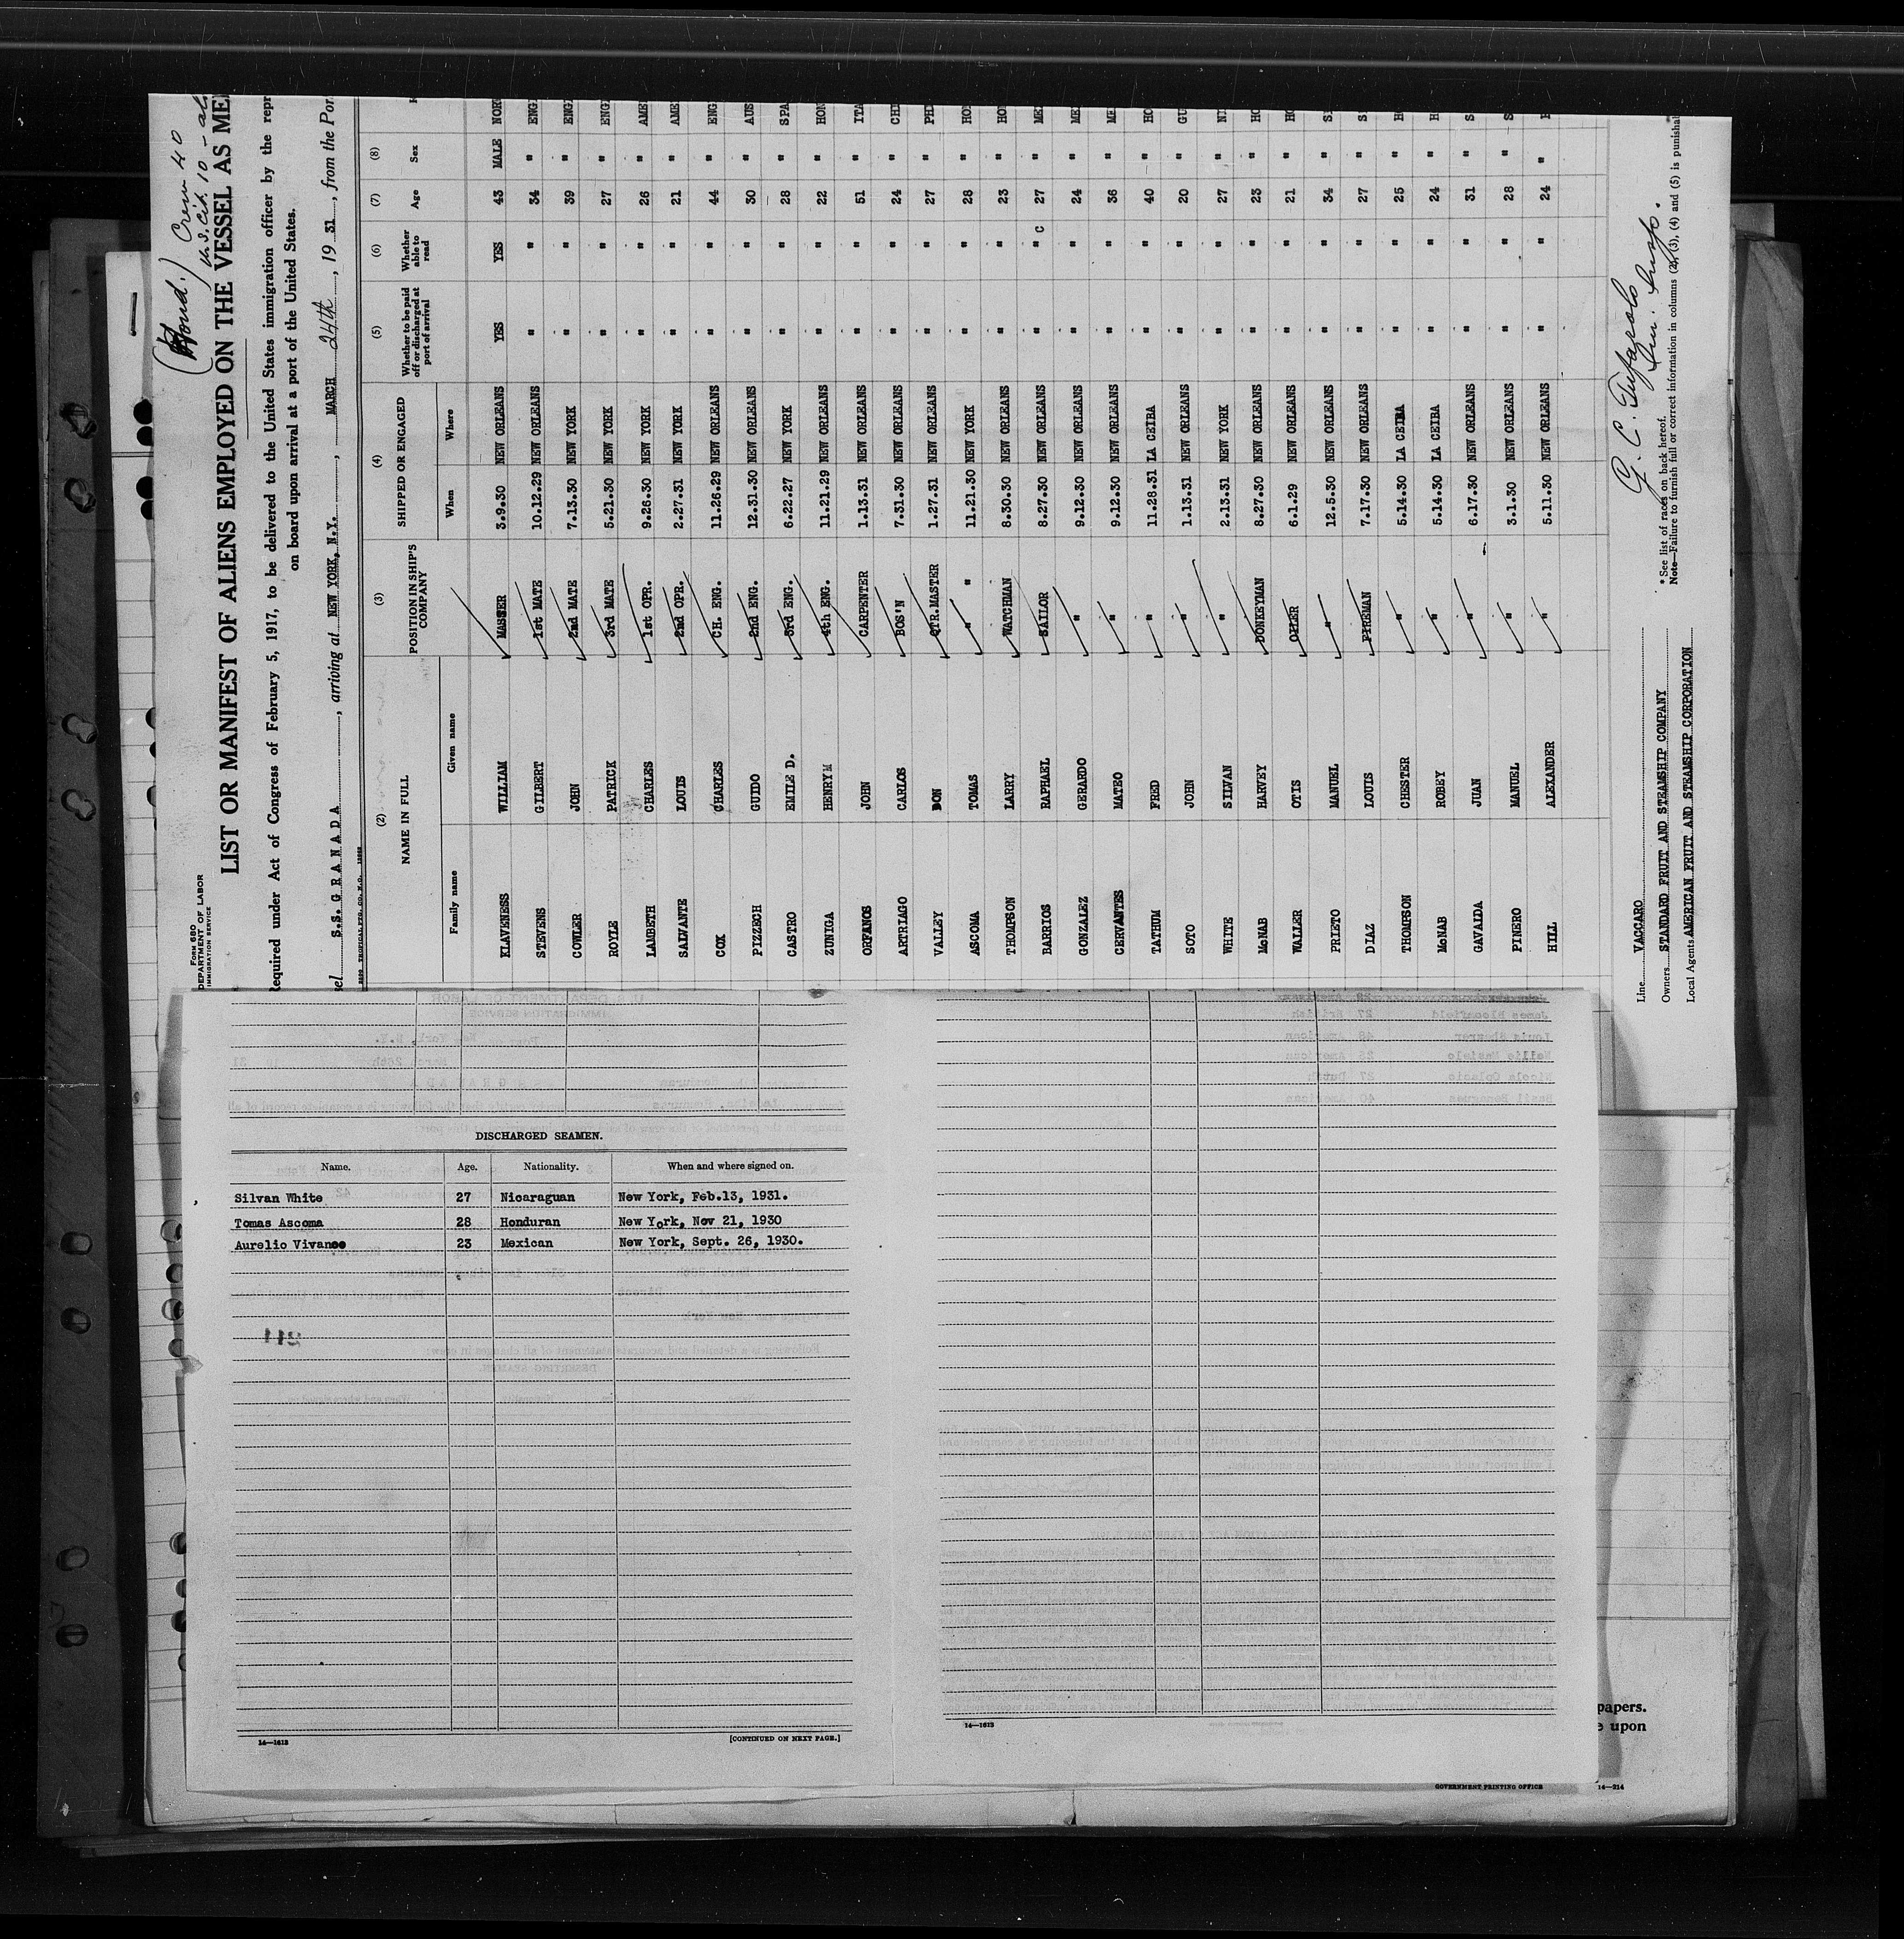 (Hond.) Crew 40
U.S. Cit. 10 - al
Form 680
DEPARTMENT OF LABOR
IMMIGRATION SERVICE
LIST OR MANIFEST OF ALIENS EMPLOYED ON THE VESSEL AS ME
Required under Act of Congress of February 5, 1917, to be delivered to the United States immigration officer by the repr
on board upon arrival at a port of the United States.
sel S.S. GRANADA, arriving at NEW YORK, N.Y., MARCH 24th, 19 31, from the Por
(2) (3) (4) (5) (6) (7) (8)
NAME IN FULL POSITION IN SHIP'S COMPANY SHIPPED OR ENGAGED Whether to be paid off or discharged at port of arrival Whether able to read Age Sex
Family name Given name When Where
KLAVENESS WILLIAM MASTER 3.9.30 NEW ORLEANS YES YES 43 MALE NOR
STEVENS GILBERT 1st MATE 10.12.29 NEW ORLEANS " " 34 " ENG
COWLER JOHN 2nd MATE 7.13.30 NEW YORK " " 39 " ENG
ROYLE PATRICK 3rd MATE 5.21.30 NEW YORK " " 27 " ENG
LAMBETH CHARLES 1st OPR. 9.26.30 NEW YORK " " 26 " AME
SALVANTE LOUIS 2nd OPR. 2.27.31 NEW YORK " " 21 " AME
COX CHARLES CH. ENG. 11.26.29 NEW ORLEANS " " 44 " ENG
PIZZECH GUIDO 2nd ENG. 12.31.30 NEW ORLEANS " " 30 " AUS
CASTRO EMILE D. 3rd ENG. 6.22.27 NEW YORK " " 28 " SPA
ZUNIGA HENRY M 4th ENG. 11.21.29 NEW ORLEANS " " 22 " HON
ORFANOS JOHN CARPENTER 1.13.31 NEW ORLEANS " " 51 " ITA
ARTRIAGO CARLOS BOS'N 7.31.30 NEW ORLEANS " " 24 " CHI
VALLEY DON QTR.MASTER 1.27.31 NEW ORLEANS " " 27 " PHI
ASCOMA TOMAS " " 11.21.30 NEW YORK " " 28 " HO
THOMPSON LARRY WATCHMAN 8.30.30 NEW ORLEANS " " 23 " HO
BARRIOS RAPHAEL SAILOR 8.27.30 NEW ORLEANS " " c 27 " ME
GONZALEZ GERARDO " 9.12.30 NEW ORLEANS " " 24 " ME
CERVANTES MATEO " 9.12.30 NEW ORLEANS " " 36 " ME
TATHUM FRED " 11.28.31 LA CEIBA " " 40 " HO
SOTO JOHN " 1.13.31 NEW ORLEANS " " 20 " GU
WHITE SILVAN " 2.13.31 NEW YORK " " 27 " NI
McNAB HARVEY DONKEYMAN 8.27.30 NEW ORLEANS " " 23 " HO
WALLER OTIS OILER 6.1.29 NEW ORLEANS " " 21 " HO
PRIETO MANUEL " 12.5.30 NEW ORLEANS " " 34 " S
DIAZ LOUIS FIREMAN 7.17.30 NEW ORLEANS " " 27 " S
THOMPSON CHESTER " 5.14.30 LA CEIBA " " 25 " H
McNAB ROBEY " 5.14.30 LA CEIBA " " 24 " H
GAVALDA JUAN " 6.17.30 NEW ORLEANS " " 31 " S
PINERO MANUEL " 3.1.30 NEW ORLEANS " " 28 " S
HILL ALEXANDER " 5.11.30 NEW ORLEANS " " 24 "
Line VACCARO
Owners STANDARD FRUIT AND STEAMSHIP COMPANY
Local Agents AMERICAN FRUIT AND STEAMSHIP CORPORATION
* See list of races on back hereof.
Note—Failure to furnish full or correct information in columns (2), (3), (4) and (5) is punishal
DISCHARGED SEAMEN.
Name. Age. Nationality. When and where signed on.
Silvan White 27 Nicaraguan New York, Feb.13, 1931.
Tomas Ascoma 28 Honduran New York, Nov 21, 1930
Aurelio Vivanco 23 Mexican New York, Sept. 26, 1930.
14—1613 [CONTINUED ON NEXT PAGE.]
14—1613
papers.
e upon
GOVERNMENT PRINTING OFFICE 14—214